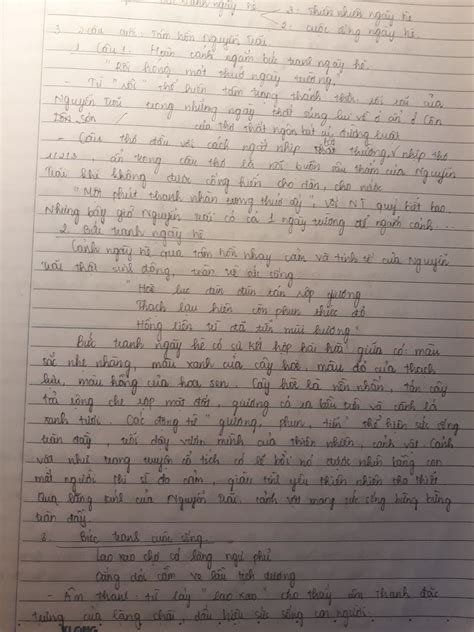 2. Thiên nhiên ngày hè
2. cuộc sống ngày hè
3. 2 câu cuối: Tâm hồn Nguyễn Trãi
1. Câu 1: Hoàn cảnh ngắm bức tranh ngày hè.
"Rồi hóng mát thuở ngày trường"
- Từ "rồi" thể hiện tâm trạng thanh thản, rồi rãi của
Nguyễn Trãi trong những ngày tháng sống lui về ở ẩn ở Côn
Sơn
của thơ thất ngôn bát cú đường luật
Câu thơ đầu với cách ngắt nhịp thất thường, nhịp thơ
1/2/3, ẩn trong câu thơ là nỗi buồn của Nguyễn
Trãi khi không được cống hiến cho dân, cho nước
"Một phút thanh nhàn trong thuở ấy" với NT quý biết bao.
Nhưng bây giờ Nguyễn Trãi có cả 1 ngày trường để ngắm cảnh...
2. Bức tranh ngày hè
Cảnh ngày hè qua tâm hồn nhạy cảm và tinh tế của Nguyễn
Trãi thật sinh động, tràn trề sức sống
"Hoè lục đùn đùn tán rợp giương
Thạch lựu hiên còn phun thức đỏ
Hồng liên trì đã tiễn mùi hương"
Bức tranh ngày hè có sự kết hợp hài hoà giữa có màu
sắc nhẹ nhàng, màu xanh của cây hoè, màu đỏ của thạch
lựu, màu hồng của hoa sen. Cây hoè lá tán cây
toả rộng che rợp mặt đất, giương cả ra bầu trời và cành lá
xanh tươi. Các động từ "giương, phun, tiễn" thể hiện sức sống
tràn đầy, trỗi dậy vươn mình của thiên nhiên, cảnh vật. Cảnh
vật như trong truyện cổ tích có lẽ bởi nó được nhìn bằng con
mắt người thi sĩ đa cảm, giàu tình yêu thiên nhiên cho thấy
Qua lăng kính của Nguyễn Trãi, cảnh vật mang sức sống bừng bừng
tràn đầy.
3. Bức tranh cuộc sống
Lao xao chợ cá làng ngư phủ
Dắng dỏi cầm ve lầu tịch dương
- Âm thanh: từ láy "lao xao" cho thấy âm thanh đặc
trưng của làng chài, dấu hiệu sức sống con người.
KLONG